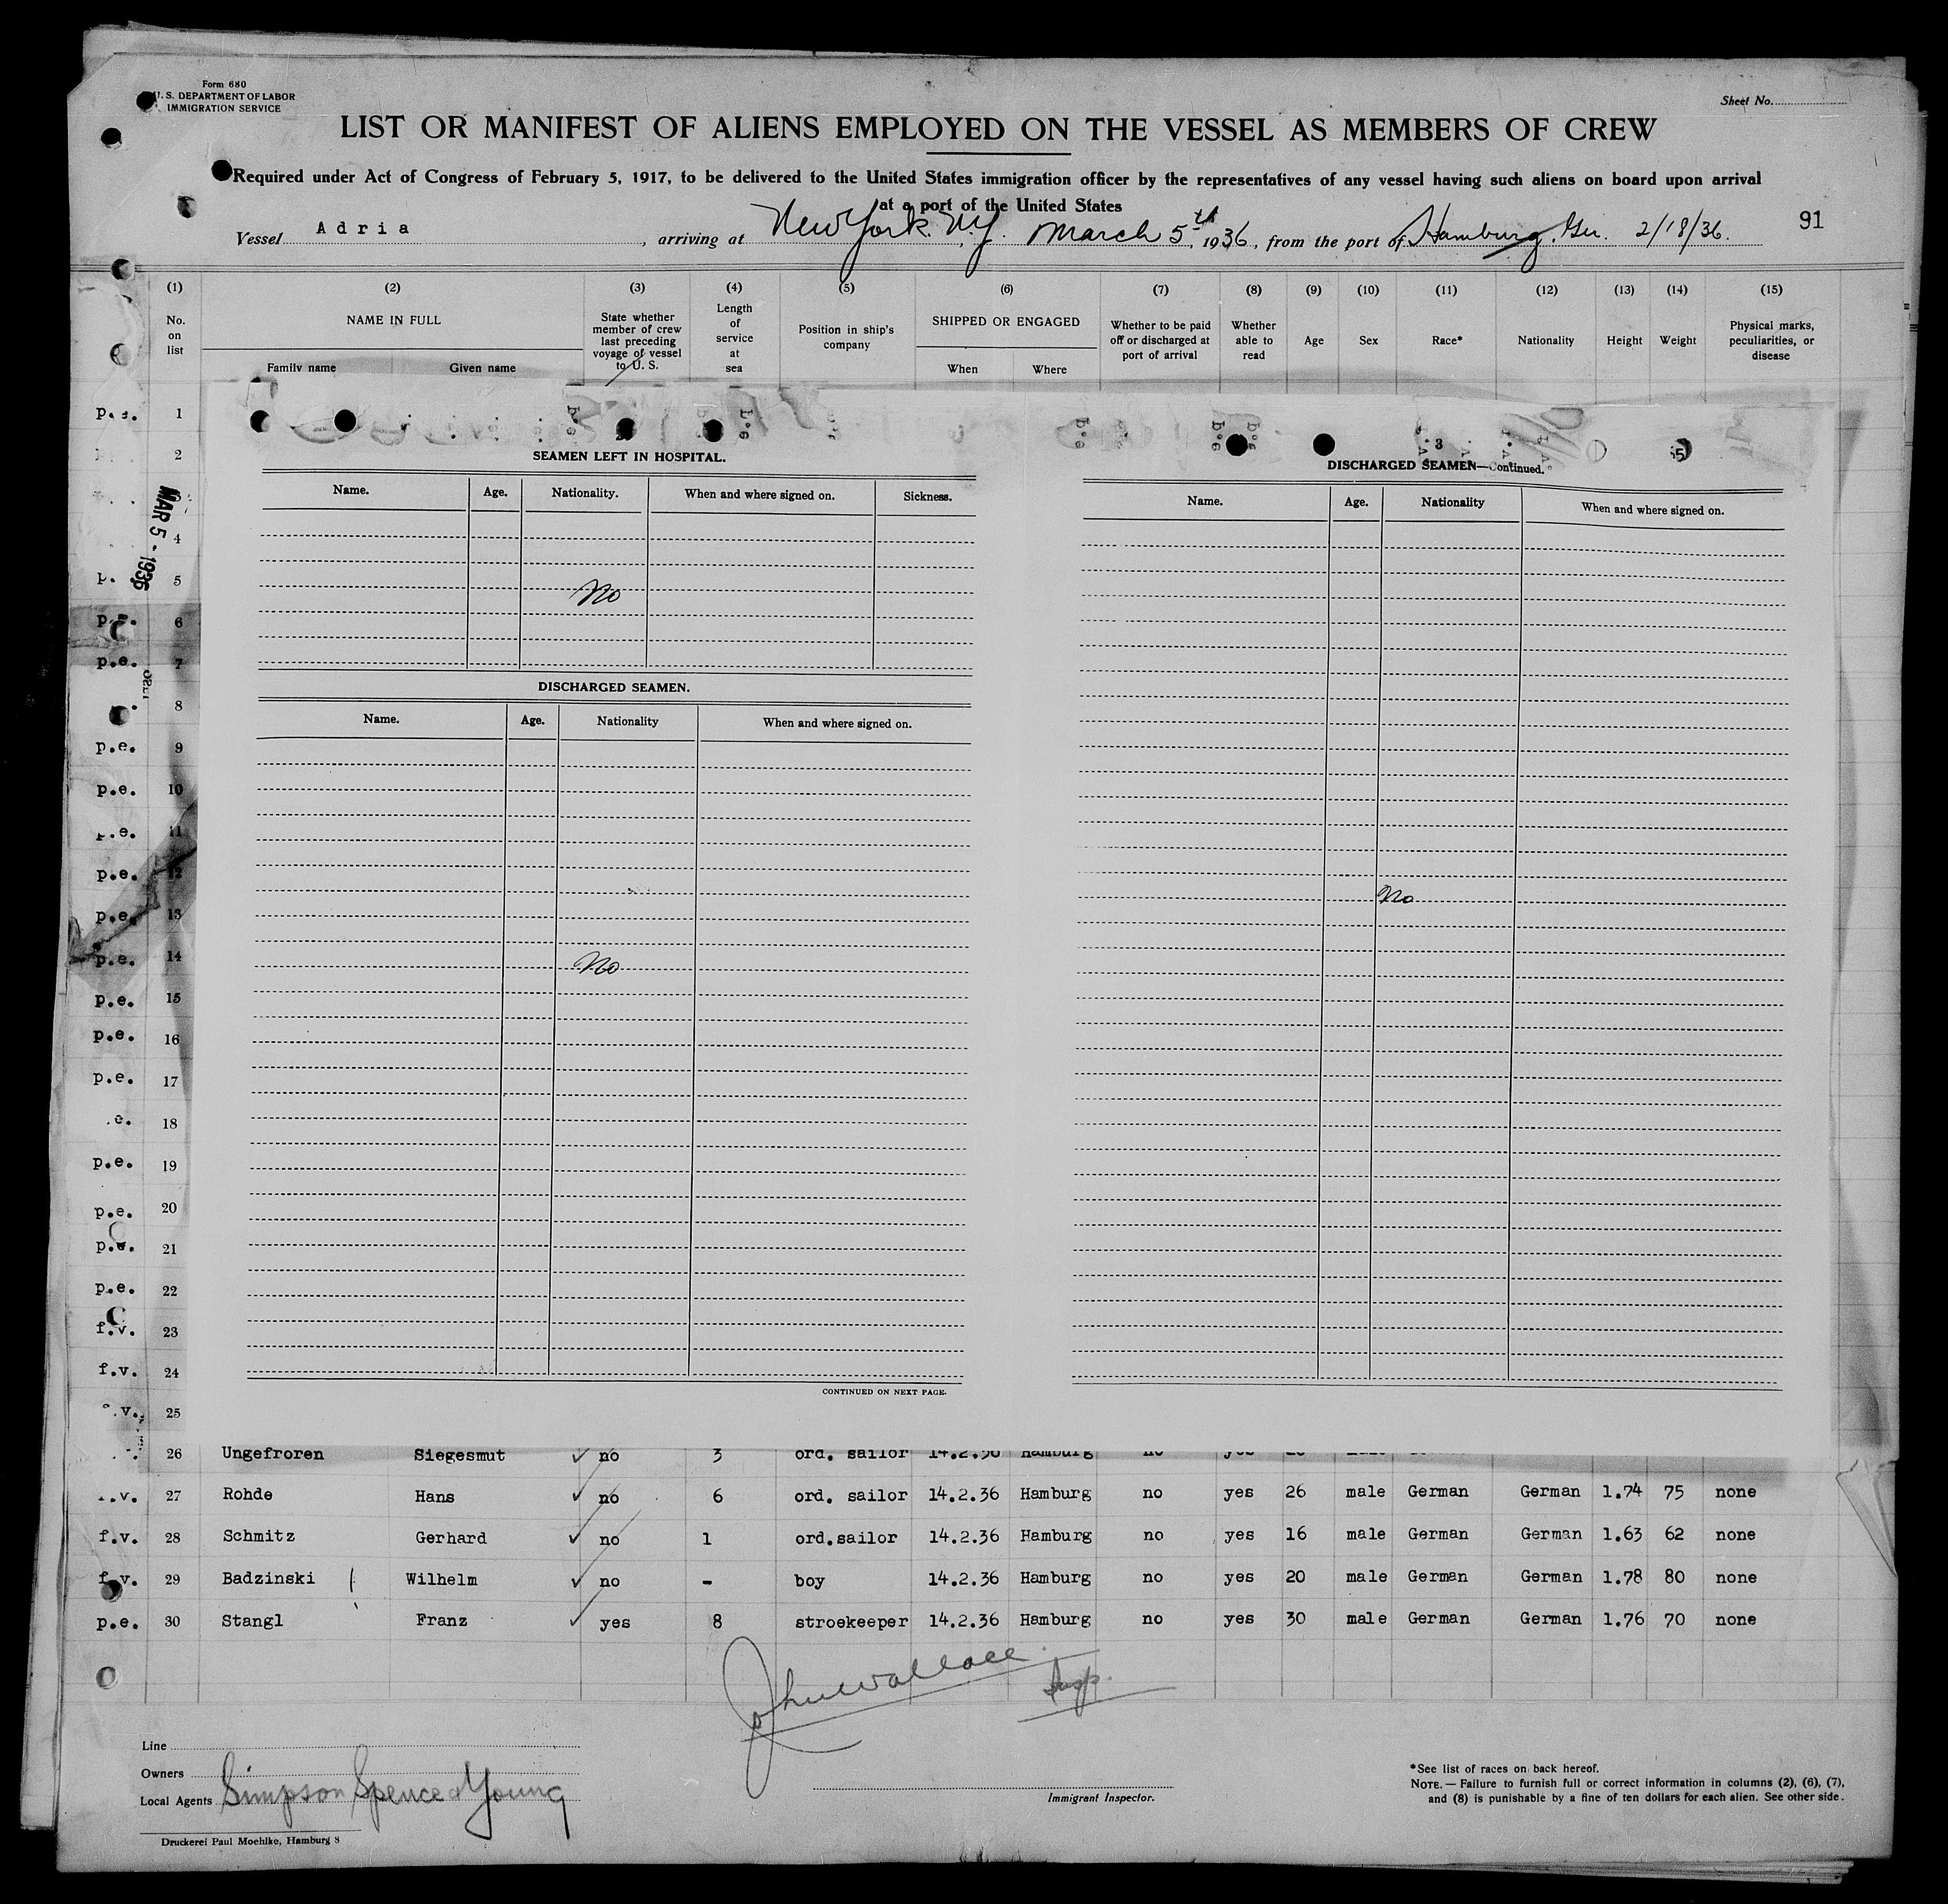 Form 680
U. S. DEPARTMENT OF LABOR
IMMIGRATION SERVICE
Sheet No.
LIST OR MANIFEST OF ALIENS EMPLOYED ON THE VESSEL AS MEMBERS OF CREW
Required under Act of Congress of February 5, 1917, to be delivered to the United States immigration officer by the representatives of any vessel having such aliens on board upon arrival
at a port of the United States
Vessel Adria, arriving at New York. N.Y. March 5th, 1936, from the port of Hamburg, Ger. 2/18/36.
91
(1) (2) (3) (4) (5) (6) (7) (8) (9) (10) (11) (12) (13) (14) (15)
No. on list
NAME IN FULL
Family name Given name
State whether member of crew last preceding voyage of vessel to U. S.
Length of service at sea
Position in ship's company
SHIPPED OR ENGAGED
When Where
Whether to be paid off or discharged at port of arrival
Whether able to read
Age
Sex
Race*
Nationality
Height
Weight
Physical marks, peculiarities, or disease
MAR 5 - 1936
1
2
4
5
6
p.e. 7
8
p.e. 9
p.e. 10
11
p.e. 12
p.e. 13
p.e. 14
p.e. 15
p.e. 16
p.e. 17
18
p.e. 19
p.e. 20
p.e. 21
p.e. 22
f.v. 23
f.v. 24
25
SEAMEN LEFT IN HOSPITAL.
Name. Age. Nationality. When and where signed on. Sickness.
No
DISCHARGED SEAMEN.
Name. Age. Nationality When and where signed on.
No
CONTINUED ON NEXT PAGE.
3
5
DISCHARGED SEAMEN—Continued.
Name. Age. Nationality When and where signed on.
No
26 Ungefroren Siegesmut no 3 ord. sailor 14.2.36 Hamburg no yes
27 Rohde Hans no 6 ord. sailor 14.2.36 Hamburg no yes 26 male German German 1.74 75 none
f.v. 28 Schmitz Gerhard no 1 ord.sailor 14.2.36 Hamburg no yes 16 male German German 1.63 62 none
f.v. 29 Badzinski Wilhelm no - boy 14.2.36 Hamburg no yes 20 male German German 1.78 80 none
p.e. 30 Stangl Franz yes 8 stroekeeper 14.2.36 Hamburg no yes 30 male German German 1.76 70 none
John Wallace
Insp.
Line
Owners
Local Agents Simpson Spence & Young
Immigrant Inspector.
Druckerei Paul Moehlke, Hamburg 8
*See list of races on back hereof.
NOTE. — Failure to furnish full or correct information in columns (2), (6), (7),
and (8) is punishable by a fine of ten dollars for each alien. See other side.